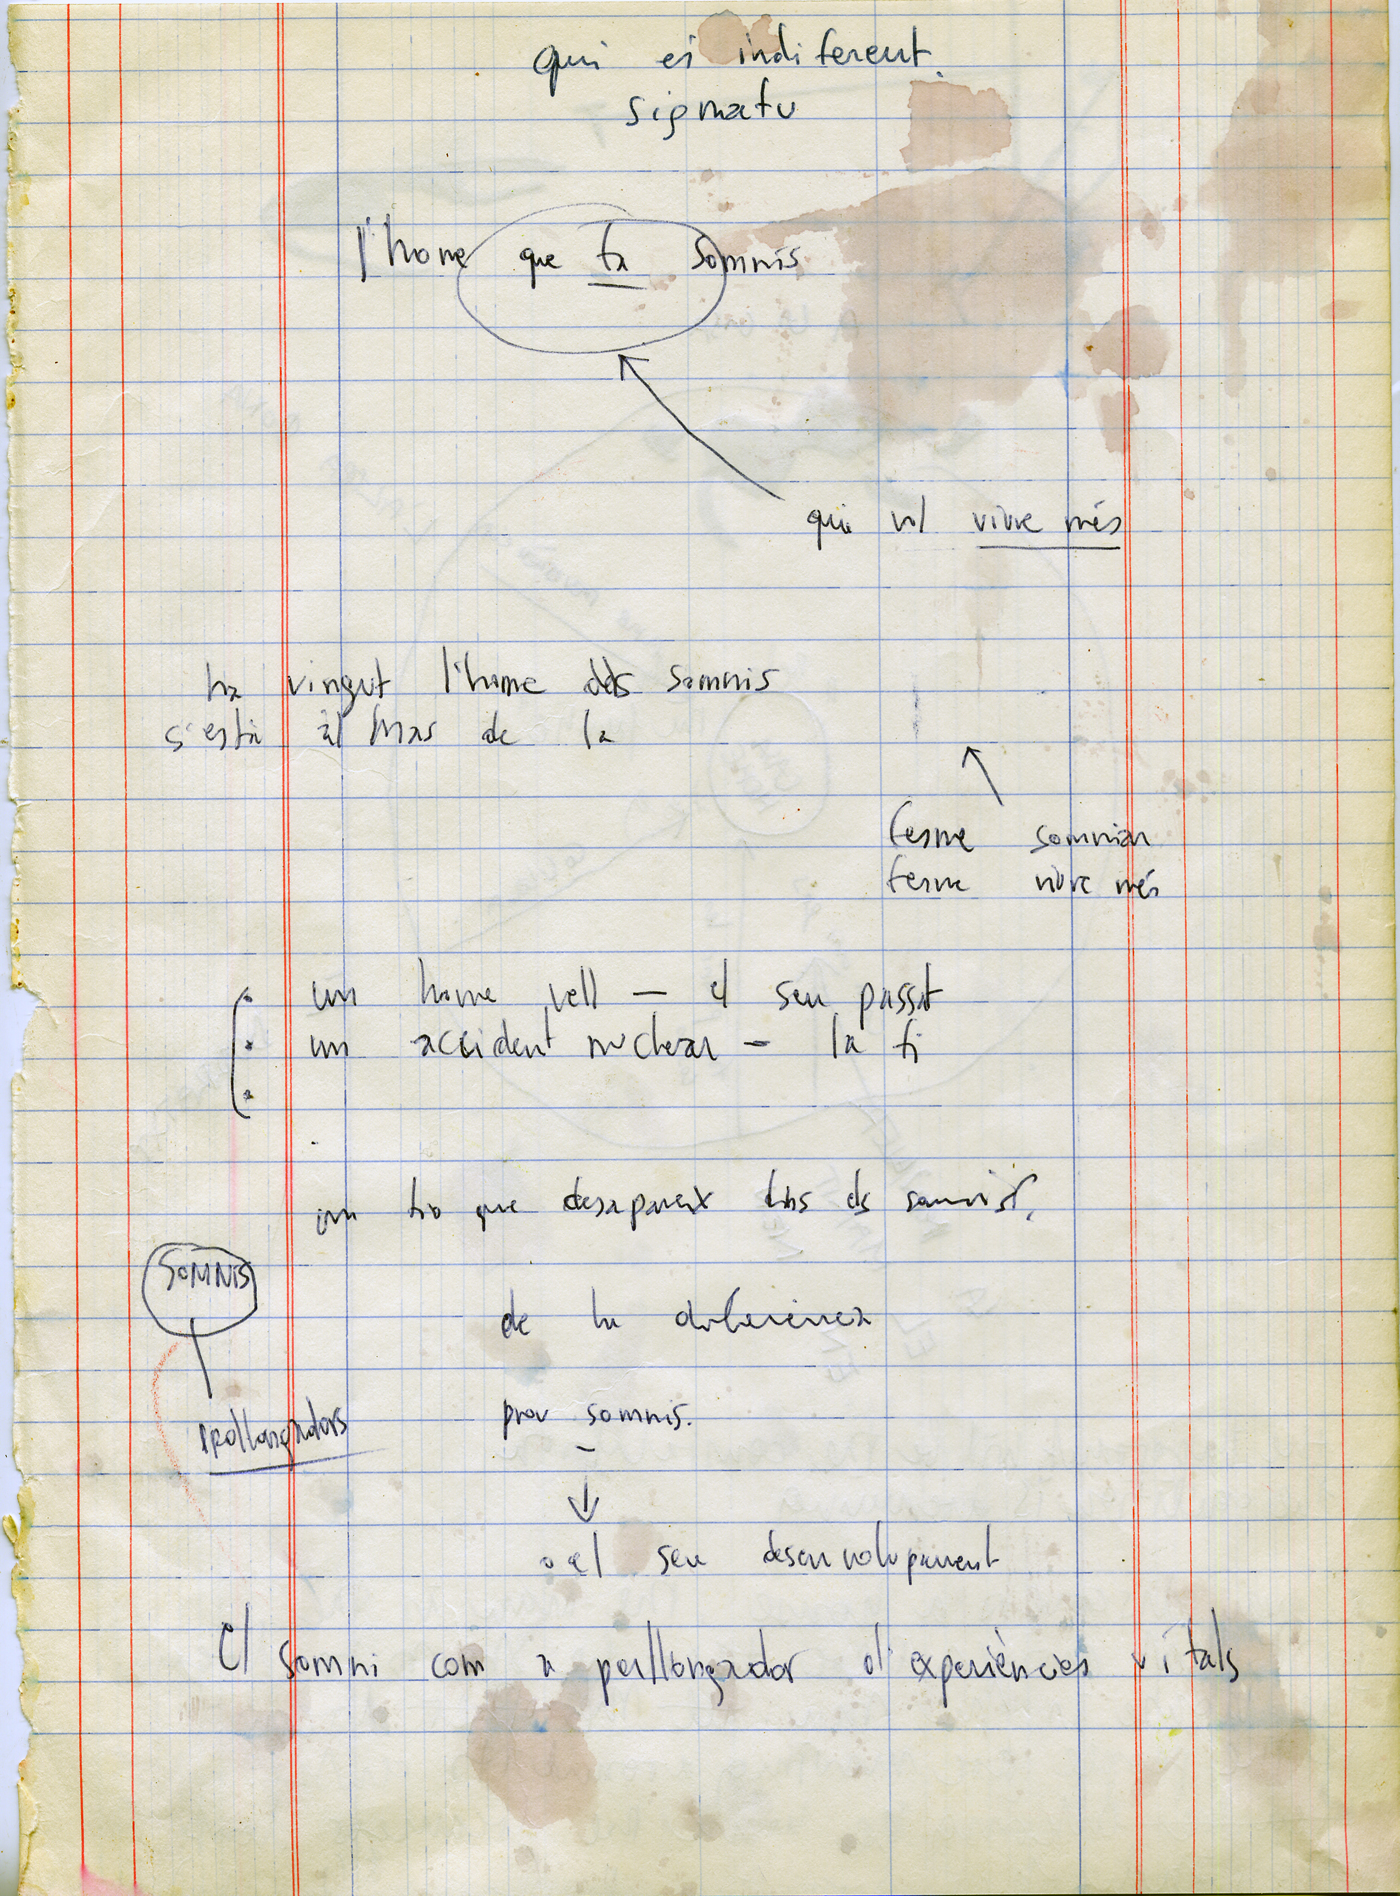 qui és indiferent
l'home que fa somnis
qui vol viure més
ha vingut l'home dels somnis
s'està al Mas de la
fesme somniar
fesme viure més
un home vell — el seu passat
un accident nuclear — la fi
un tio que desapareix dins els somnis
SOMNIS
de la
prou somnis.
prollongadors
el seu desenvolupament
El somni com a perllongador d'experiències vitals